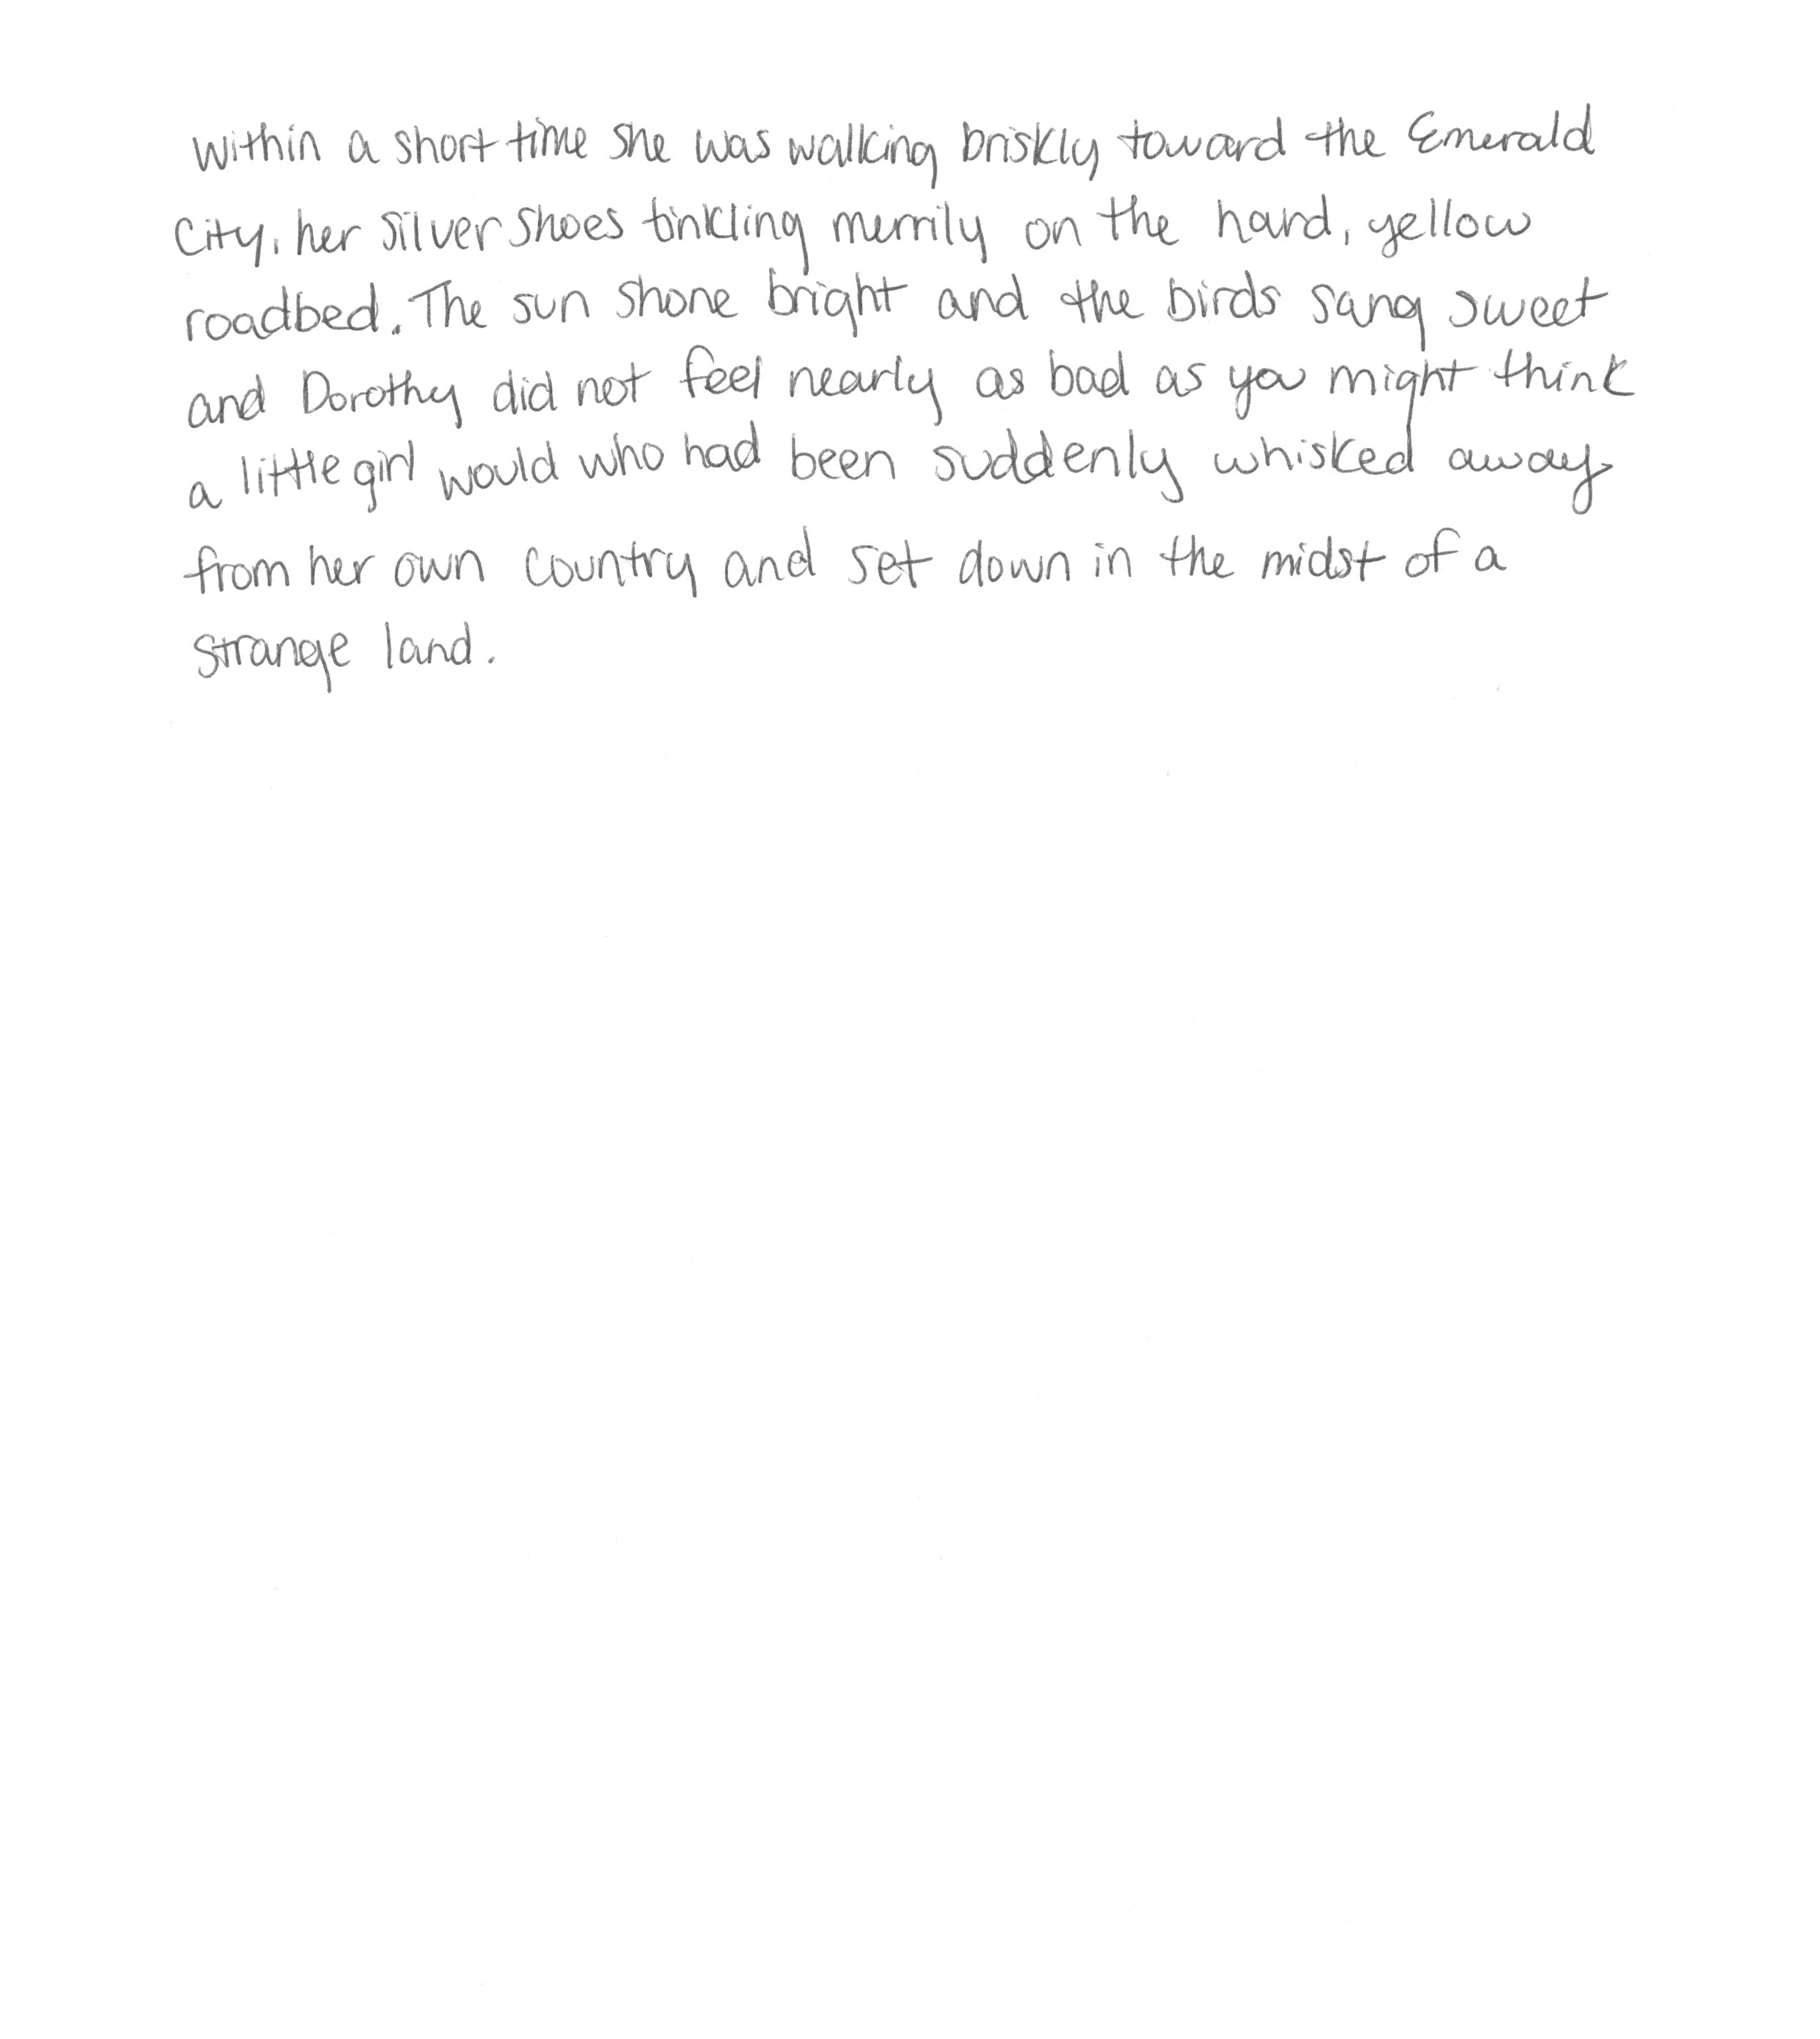 Within a short time she was walking briskly toward the Emerald
City, her silver shoes tinkling merrily on the hard, yellow
roadbed. The sun shone bright and the birds sang sweet
and Dorothy did not feel nearly as bad as you might think
a little girl would who had been suddenly whisked away
from her own country and set down in the midst of a
strange land.